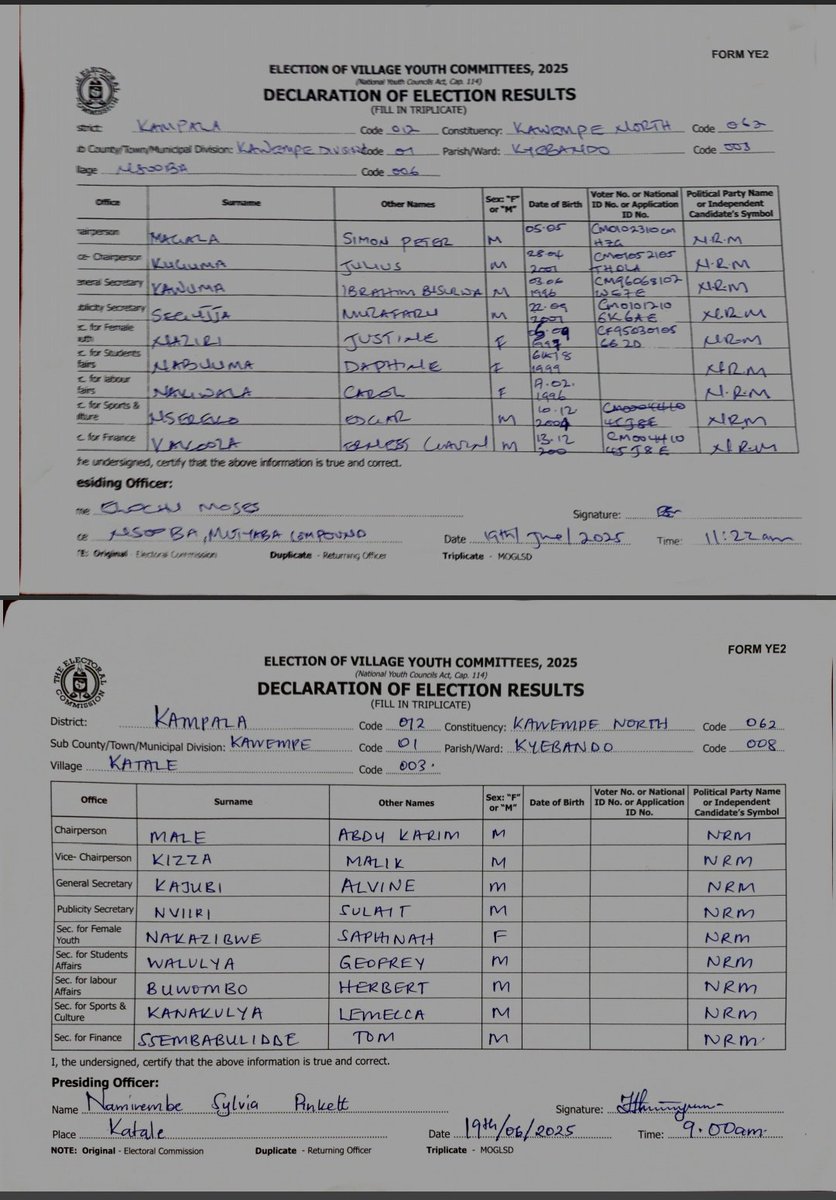 FORM YE2
ELECTION OF VILLAGE YOUTH COMMITTEES, 2025
(National Youth Councils Act, Cap. 114)
DECLARATION OF ELECTION RESULTS
(FILL IN TRIPLICATE)
strict: KAMPALA Code 012 Constituency: KAWEMPE NORTH Code 062
b County/Town/Municipal Division: KAWEMPE Code 01 Parish/Ward: KYEBANDO Code 003
llage NSOOBA Code 006
Office Surname Other Names Sex: "F" or "M" Date of Birth Voter No. or National ID No. or Application ID No. Political Party Name or Independent Candidate's Symbol
airperson MAGALA SIMON PETER M 05.05 N.R.M
ce- Chairperson JULIUS M 28.04 2001 N.R.M
eneral Secretary IBRAHIM M 03.06 1996 N.R.M
blicity Secretary M 22.09 N.R.M
c. for Female uth NAZIRI JUSTINE F N.R.M
c. for Students fairs DAPHINE F 1999 N.R.M
c. for labour fairs CAROL F 1996 N.R.M
c. for Sports & lture EDGAR M 10.12 NRM
c. for Finance M 13.12 200 N.R.M
he undersigned, certify that the above information is true and correct.
esiding Officer:
me MOSES Signature:
ce NSOOBA, COMPOUND Date 19th/June/2025 Time: 11:22am
TE: Original - Electoral Commission Duplicate - Returning Officer Triplicate - MOGLSD
THE ELECTORAL COMMISSION
FORM YE2
ELECTION OF VILLAGE YOUTH COMMITTEES, 2025
(National Youth Councils Act, Cap. 114)
DECLARATION OF ELECTION RESULTS
(FILL IN TRIPLICATE)
District: KAMPALA Code 012 Constituency: KAWEMPE NORTH Code 062
Sub County/Town/Municipal Division: KAWEMPE Code 01 Parish/Ward: KYEBANDO Code 008
Village KATALE Code 003.
Office Surname Other Names Sex: "F" or "M" Date of Birth Voter No. or National ID No. or Application ID No. Political Party Name or Independent Candidate's Symbol
Chairperson MALE ABDU KARIM M NRM
Vice- Chairperson KIZZA MALIK M NRM
General Secretary KAJUBI ALVINE M NRM
Publicity Secretary NVIIRI SULAIT M NRM
Sec. for Female Youth NAKAZIBWE SAPHINAH F NRM
Sec. for Students Affairs WALULYA GEOFREY M NRM
Sec. for labour Affairs BUWOMBO HERBERT M NRM
Sec. for Sports & Culture KANAKULYA LEMECCA M NRM
Sec. for Finance SSEMBABULIDDE TOM M NRM.
I, the undersigned, certify that the above information is true and correct.
Presiding Officer:
Name Namirembe Sylvia Pinkett Signature:
Place Katale Date 19th/06/2025 Time: 9.00am.
NOTE: Original - Electoral Commission Duplicate - Returning Officer Triplicate - MOGLSD